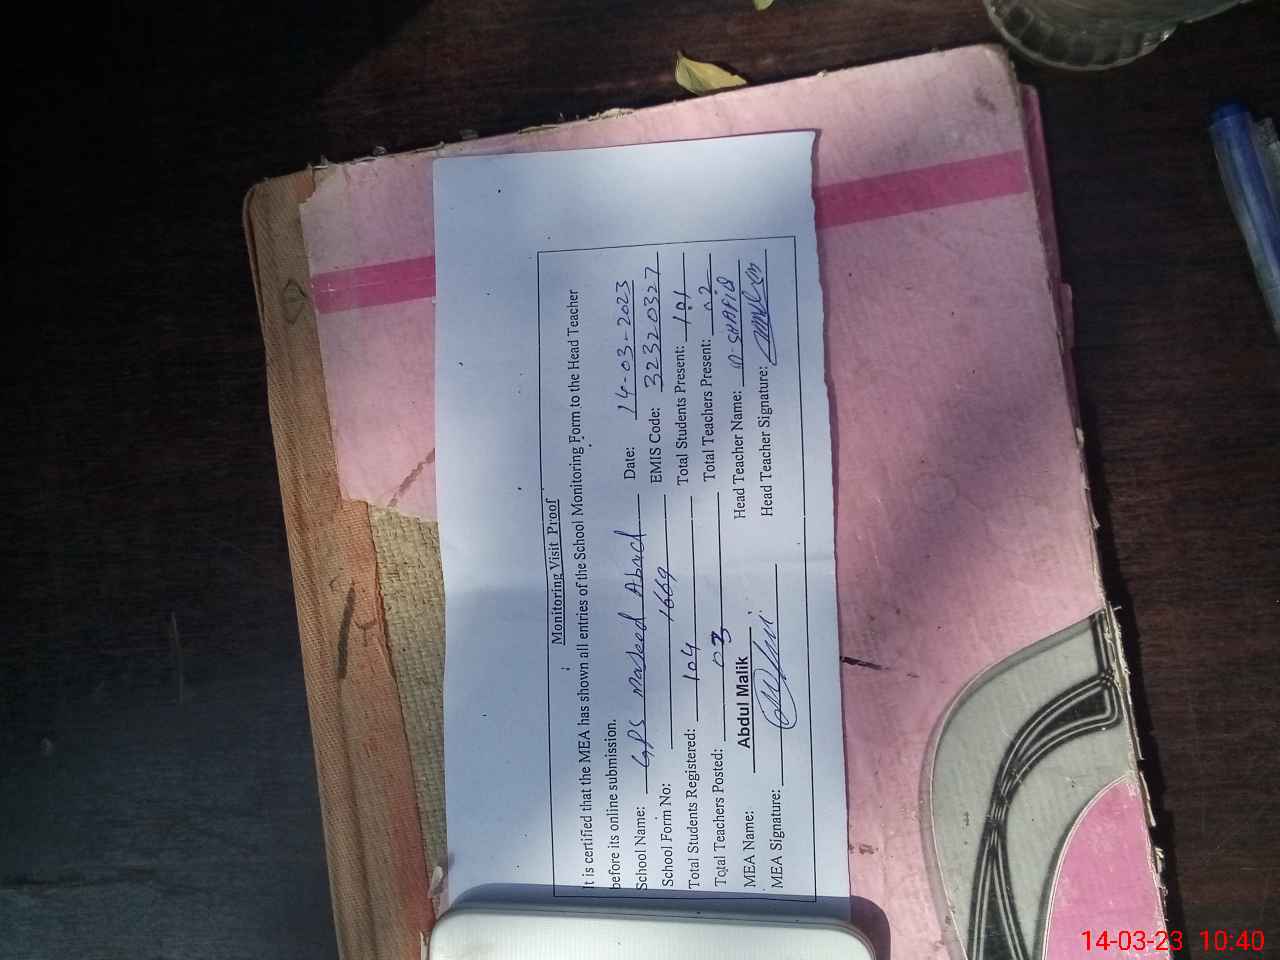 Monitoring Visit Proof
It is certified that the MEA has shown all entries of the School Monitoring Form to the Head Teacher
before its online submission.
School Name: GPS Maseed Abad Date: 14-03-2023
School Form No: 1669 EMIS Code: 32320327
Total Students Registered: 104 Total Students Present: 101
Total Teachers Posted: 03 Total Teachers Present: 02
MEA Name: Abdul Malik Head Teacher Name: SHAFIQ
MEA Signature: Head Teacher Signature:
14-03-23 10:40